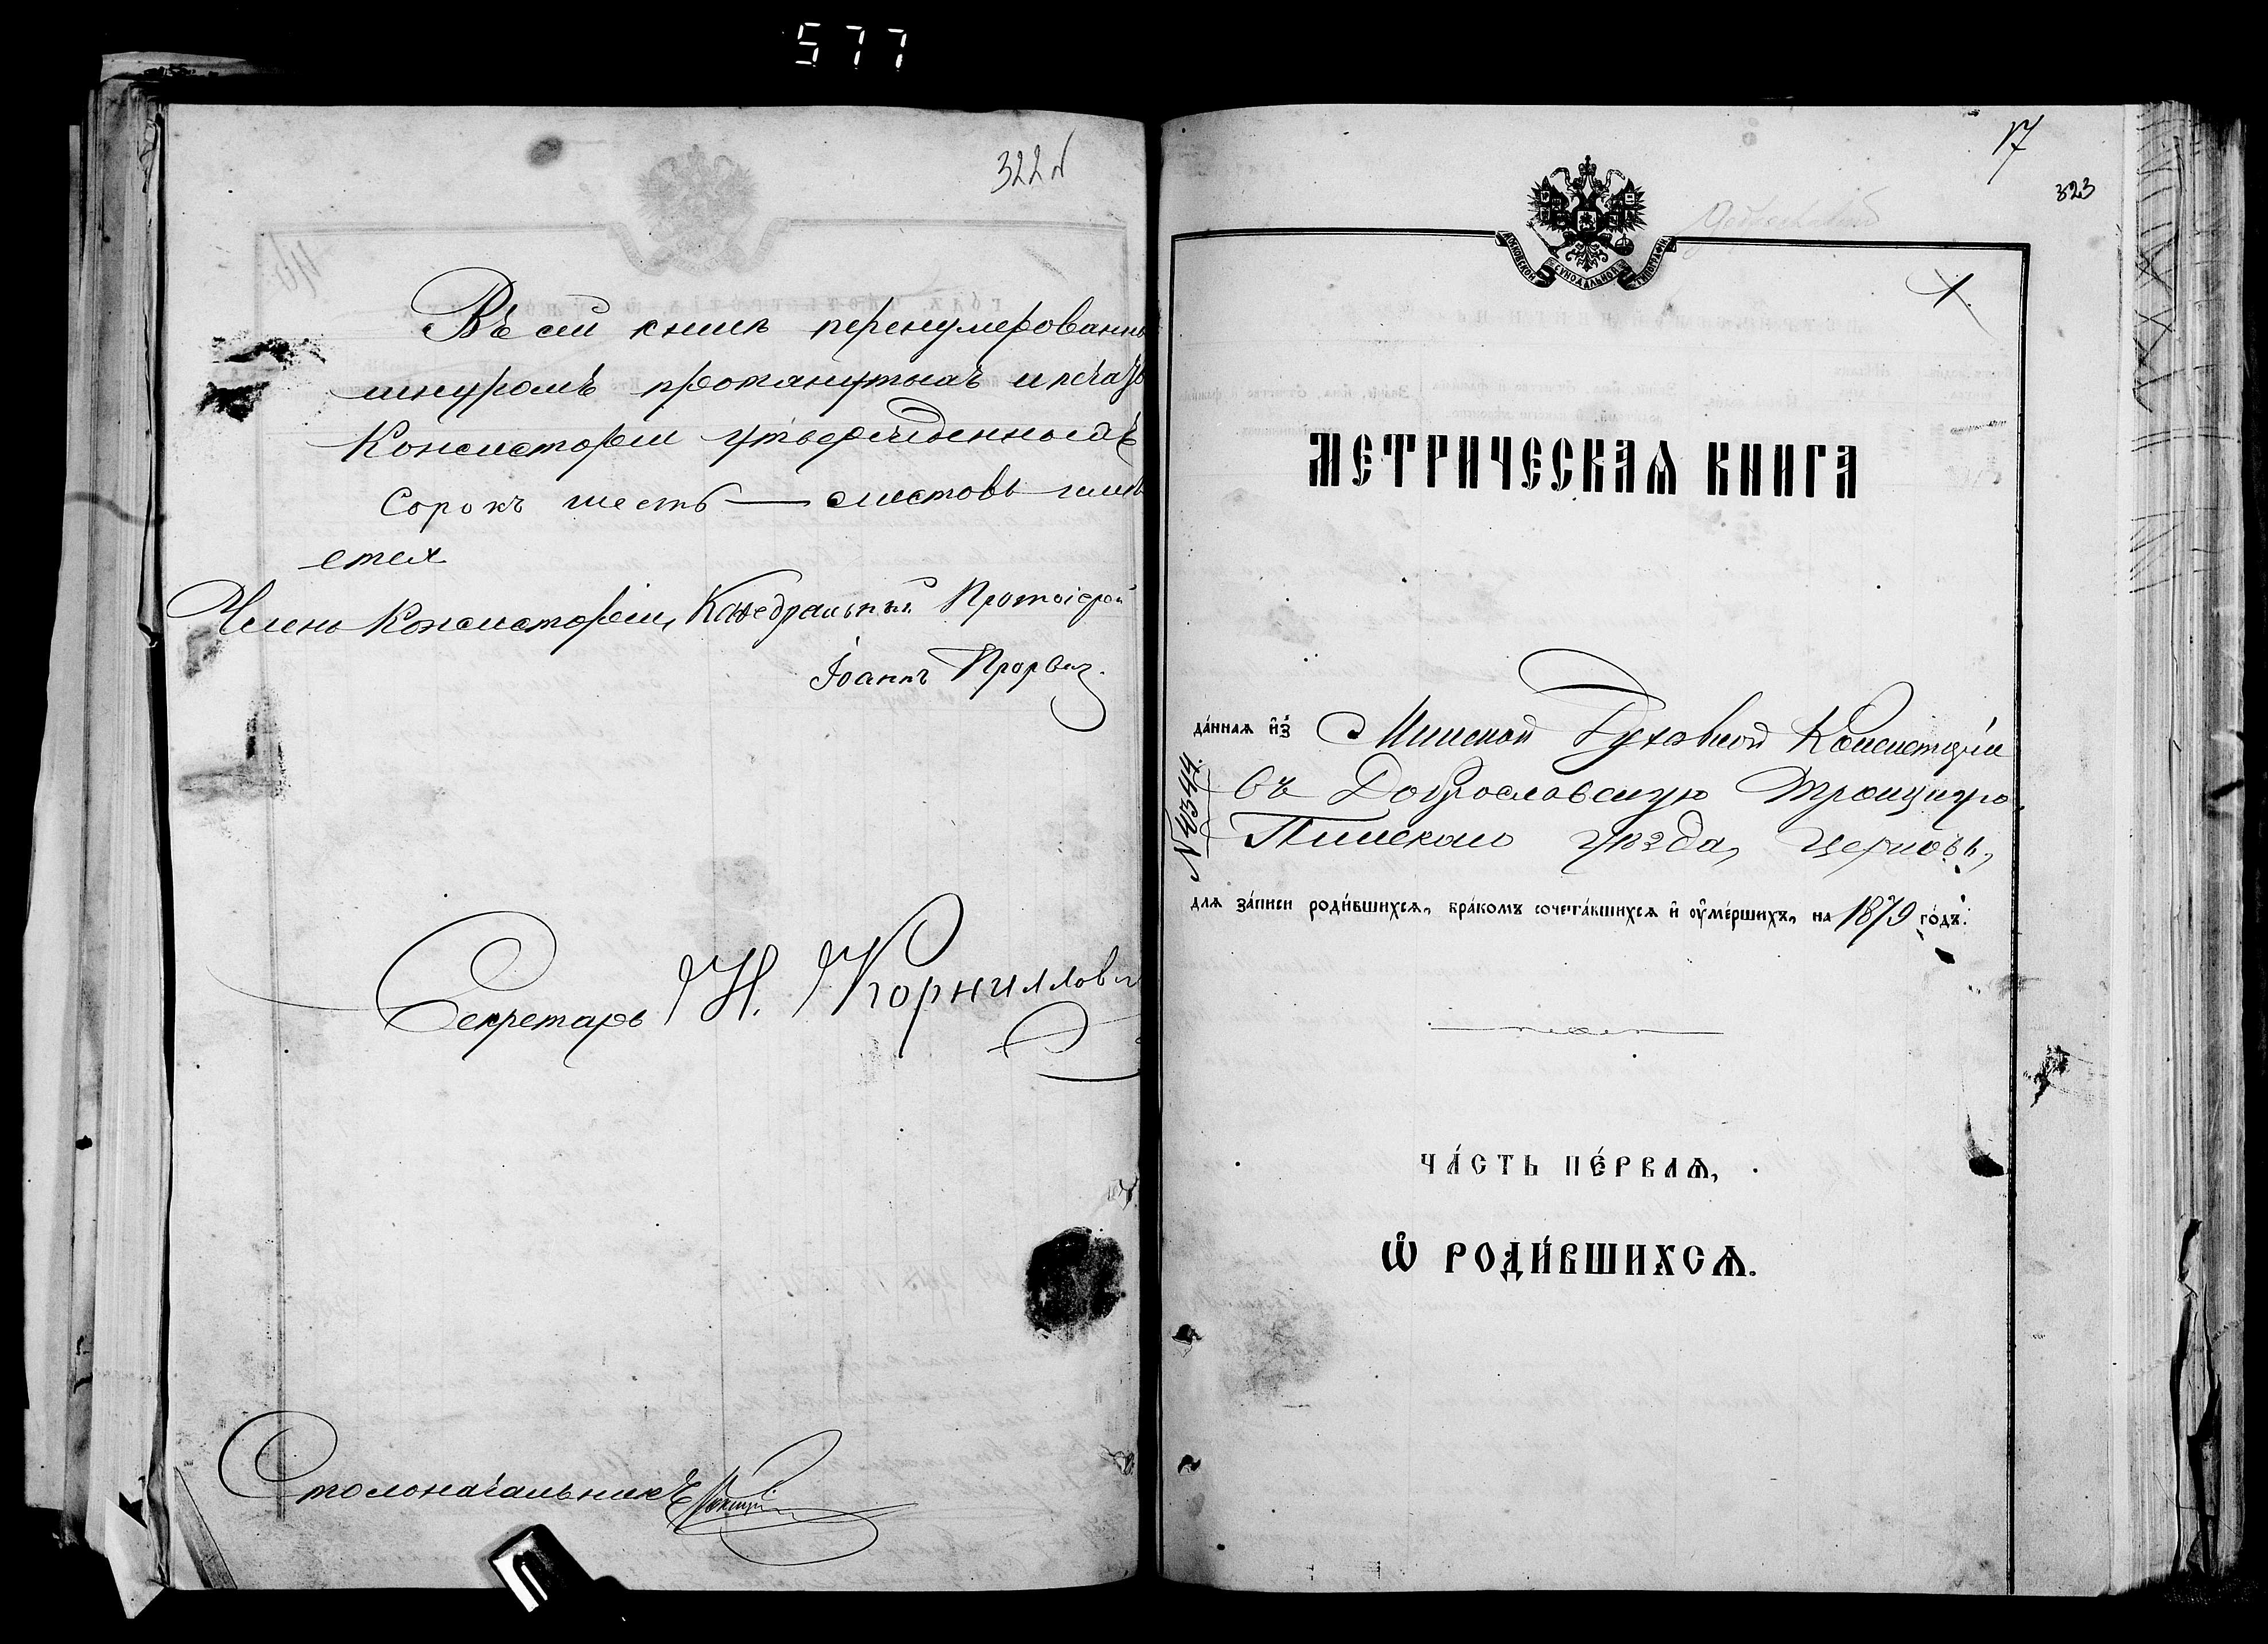 577
322
Въ сей книгѣ перенумерованны
шнуромъ протянутыхъ и печать
Консисторіи утвержденныхъ
сорокъ шесть — листовъ имѣ
ется
Членъ Консисторіи, Каѳедральный Протоіерей
Іоаннъ Прорвич
Секретарь Н. Корнилови
Столоначальникъ
17
323
МОСКОВСКОЙ СУНОДАЛЬНОЙ ТИПОГРАФІИ
1.
МЕТРИЧЕСКАѦ КНИГА
да́ннаѧ и҆з̾ Минской Духовной Консисторіи
въ Доброславскую Троицкую
№ 4344.
Пинскаго уѣзда, церковь,
длѧ за́писи роди́вшихсѧ, бра́комъ сочета́вшихсѧ и҆ оу҆ме́ршихъ, на 1879 го́дъ.
ЧА́СТЬ ПЕ́РВАѦ,
Ѡ҆ РОДИ́ВШИХСѦ.